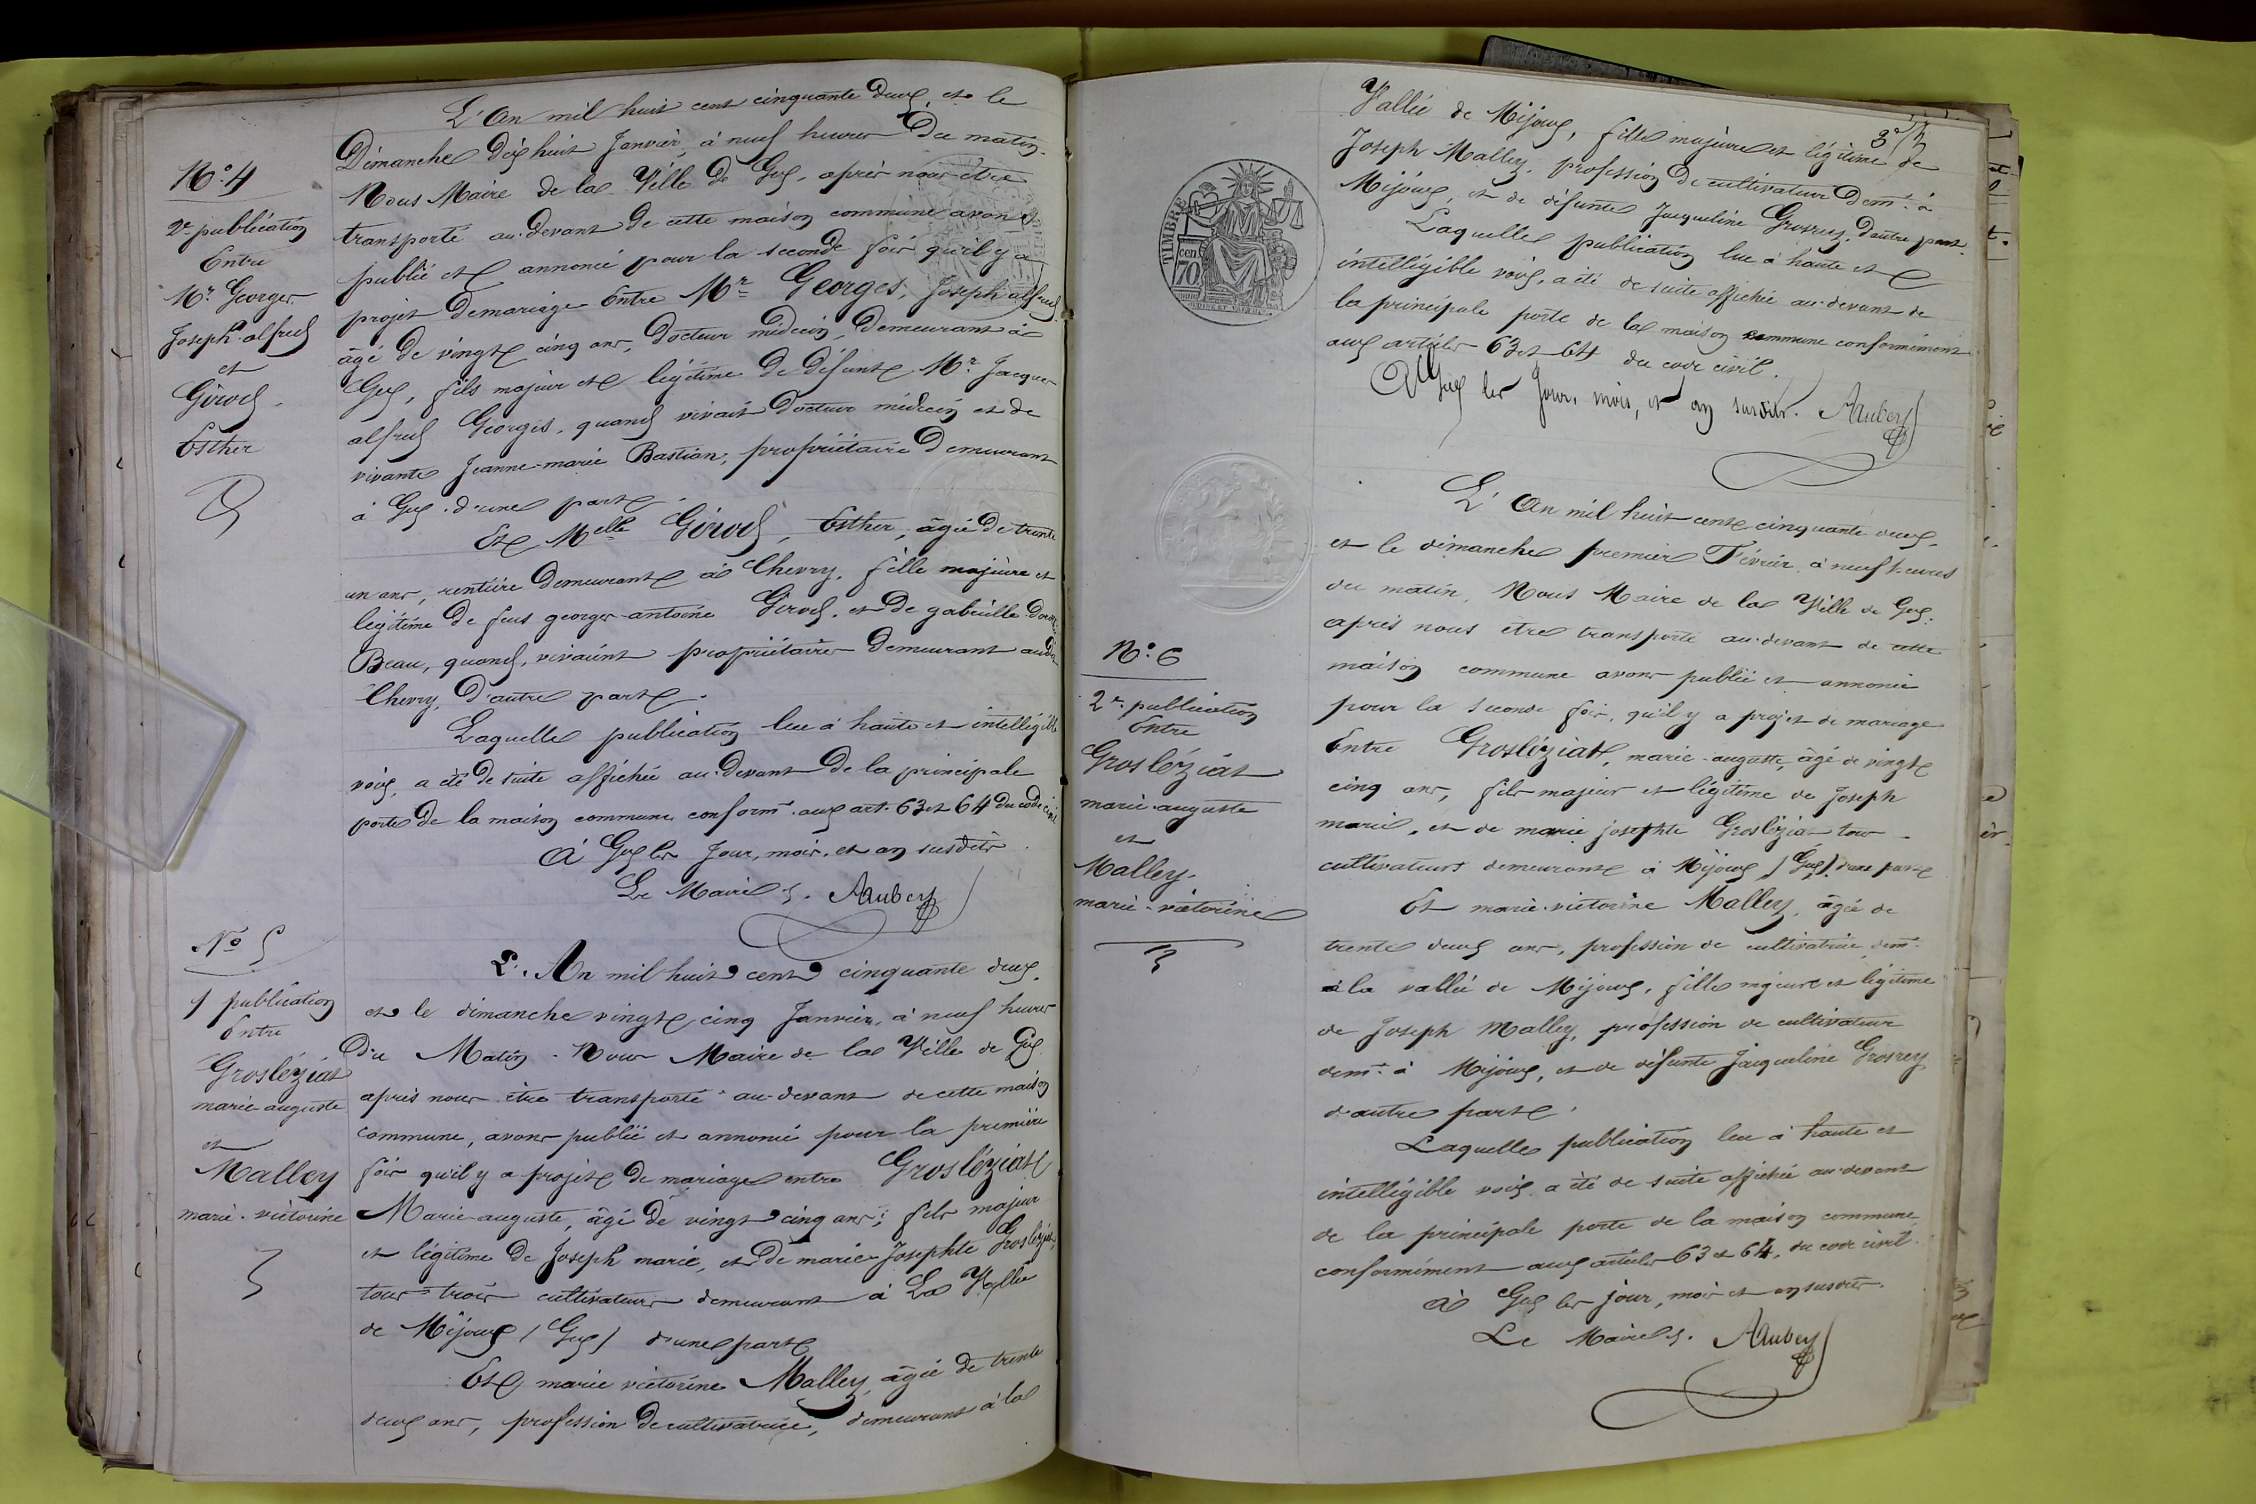 N.° 4
2e publication
Entre
Mr. Georges
Joseph-alfred
et
Girod
Esther
L'An mil huit cent cinquante deux, et le
Dimanche dix huit Janvier, à neuf heures du matin.
Nous Maire de la Ville de Gex, après nous être
transporté au-devant de cette maison commune avons
publié et annoncé pour la seconde fois qu'il y a
projet de mariage Entre Mr. Georges, Joseph alfred
âgé de vingt cinq ans, Docteur médecin, demeurant à
Gex, fils majeur et légitime de défunt Mr. Jacques
alfred Georges, quand vivait Docteur médecin et de
vivante Jeanne-marie Bastian, propriétaire demeurant
à Gex, d'une part
Et Melle Girod, Esther, âgée de trente
un ans, rentière demeurant à Chevry, fille majeure et
légitime de feus georges-antoine Girod, et de gabrielle
Beau, quand, vivaient propriétaires demeurant audit
Chevry, D'autre part.
Laquelle publication lue à haute et intelligible
voix, a été de suite affichée au-devant de la principale
porte de la maison commune conformt. aux art. 63 et 64 du code civil
à Gex les Jour, mois, et an susdits.
Le Maire. Aubery
No 5
1 publication
Entre
Grosléziat
marie-auguste
et
Malley
marie-victorine
L'An mil huit cent cinquante deux,
et le dimanche vingt cinq Janvier, à neuf heures
Du Matin. Nous Maire de la Ville de Gex
après nous être transporté au-devant de cette maison
commune, avons publié et annoncé pour la première
fois qu'il y a projet de mariage entre Grosléziat
Marie-auguste, âgé de vingt cinq ans, fils majeur
et légitime de Joseph marie, et de marie-Josephte Grosléziat,
tous-trois cultivateurs demeurant à La Vallée
de Mijoux (Gex) d'une part
Et marie victorine Malley, âgée de trente
deux ans, profession de cultivatrice, demeurant à la
3e
Vallée de Mijoux, fille majeure et légitime de
Joseph Malley, profession de cultivateur demt. à
Mijoux, et de défunte Jacqueline Grosrey, d'autre part.
Laquelle publication lue à haute et
intelligible voix, a été de suite affichée au-devant de
la principale porte de la maison commune conformément
aux articles 63 et 64 du code civil.
à Gex les Jour, mois, et an susdits. Aubery
TIMBRE
70 cen
N.° 6
2e publication
Entre
Grosléziat
marie-auguste
et
Malley
marie-victorine
L'An mil huit cent cinquante deux,
et le dimanche premier Février, à neuf heures
du matin, Nous Maire de la Ville de Gex.
après nous être transporté au-devant de cette
maison commune avons publié et annoncé
pour la seconde fois, qu'il y a projet de mariage
Entre Grosléziat, marie-auguste, âgé de vingt
cinq ans, fils majeur et légitime de Joseph
marie, et de marie josephte Grosléziat tous
cultivateurs demeurant à Mijoux (Gex) d'une part
Et marie-victorine Malley, âgée de
trente deux ans, profession de cultivatrice demt.
à la vallée de Mijoux, fille majeure et légitime
de Joseph Malley, profession de cultivateur
demt. à Mijoux, et de défunte Jacqueline Grosrey
d'autre part.
Laquelle publication lue à haute et
intelligible voix a été de suite affichée au-devant
de la principale porte de la maison commune
conformément aux articles 63 et 64. du code civil.
à Gex les jour, mois et an susdits.
Le Maire. Aubery